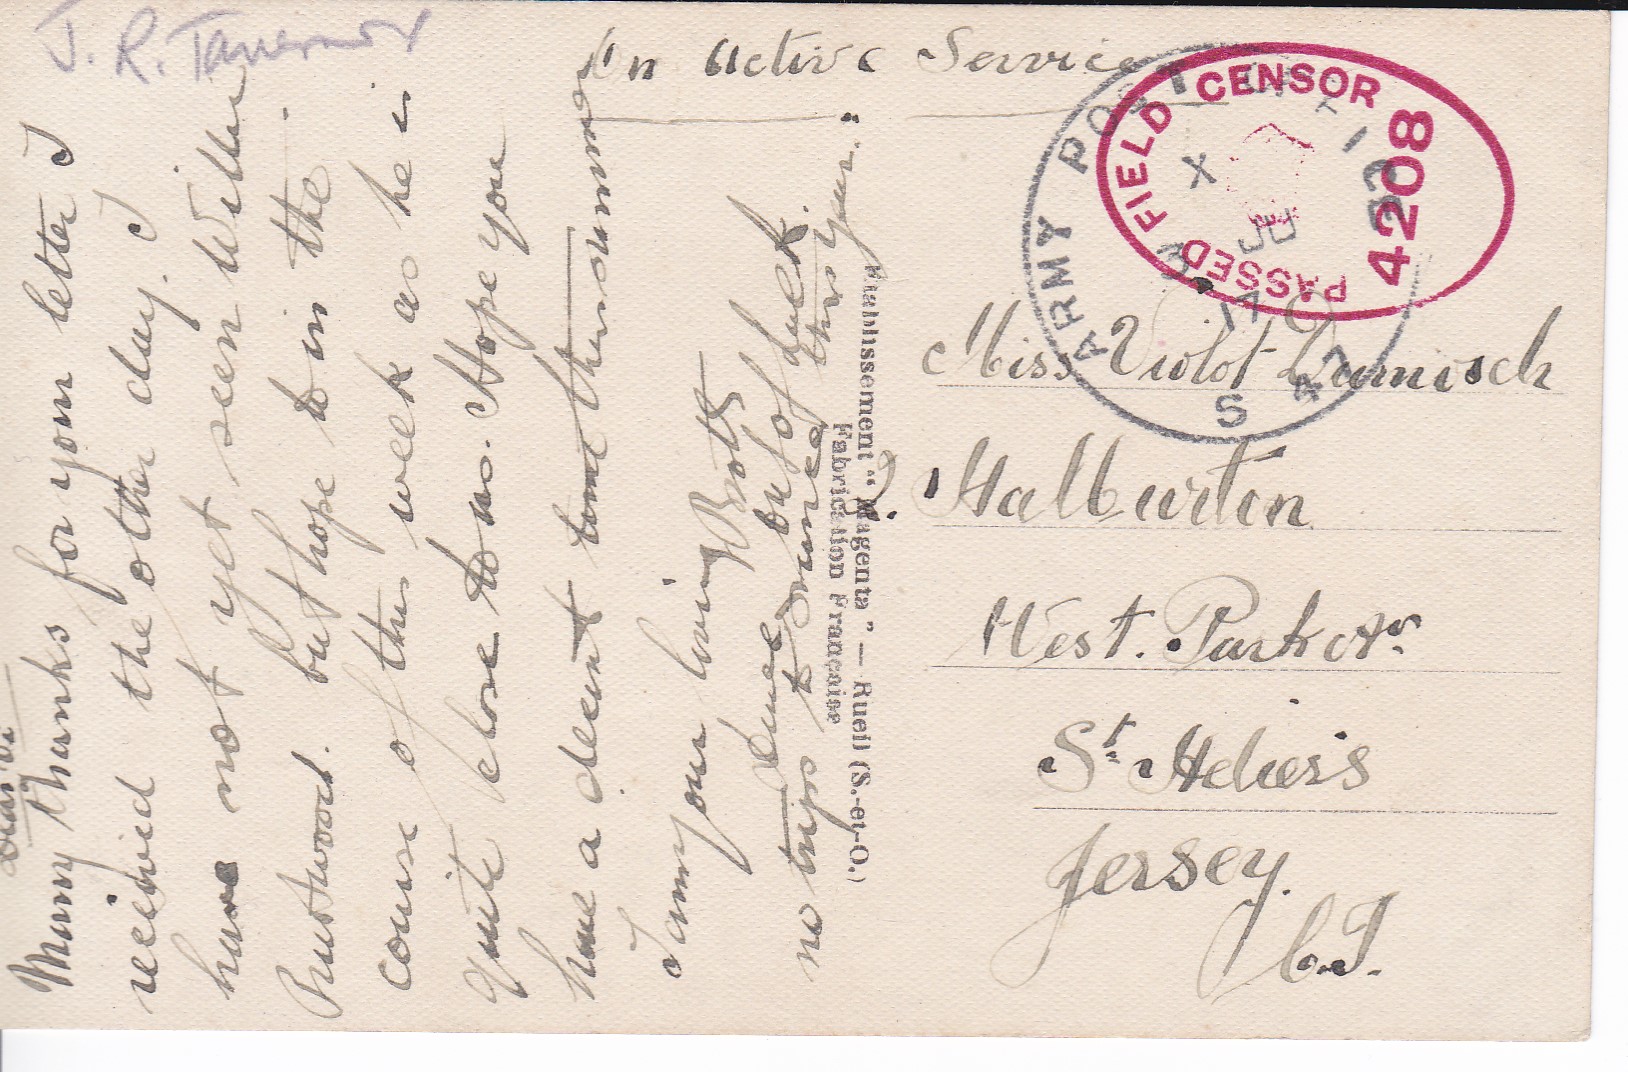 J. R. Tavernor
On Active Service
Dear Vi
Many thanks for your letter I
received the other day. I
have not yet seen Willie
but hope to in the
course of this week as he is
quite close to us. Hope you
have a decent time this summer
I am your loving Bro
James
no trips to
out of luck.
this year.
Etablissement " Magenta " — Rueil (S.-et-O.)
Fabrication Française
ARMY POST OFFICE
X
JU
17
S 47
PASSED FIELD CENSOR
4208
Miss Violet Damisch
2. Halburton
West. Park Av
St Heliers
Jersey.
C.I.